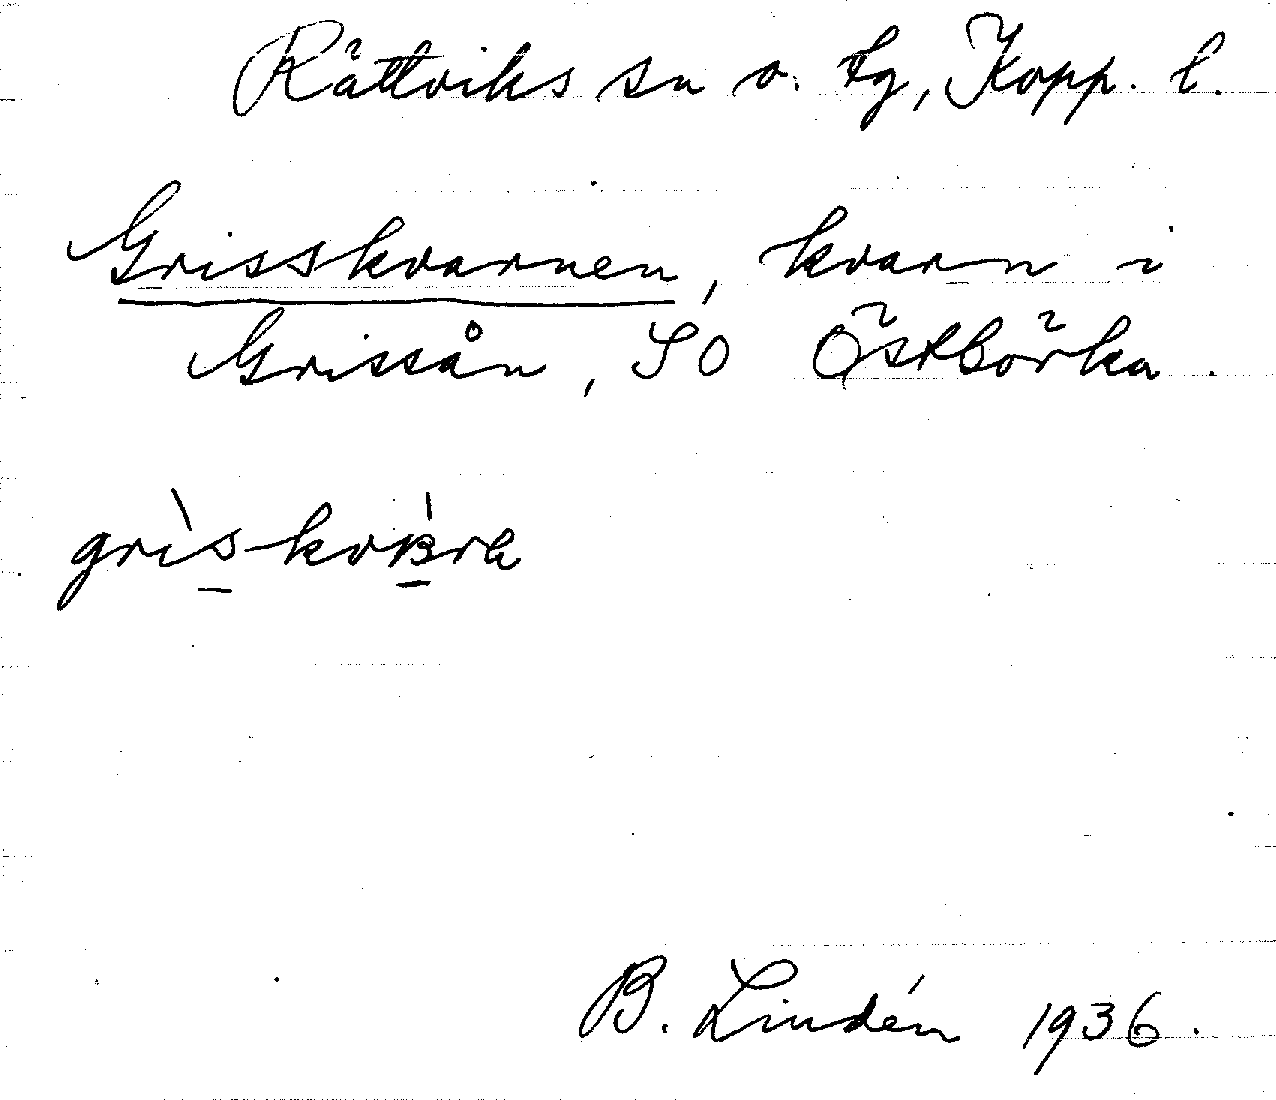 Rättviks sn o. tg, Kopp. l.
Grisskvarnen, kvarn i
Grissån, SO Östbörka.
B. Lindén 1936.